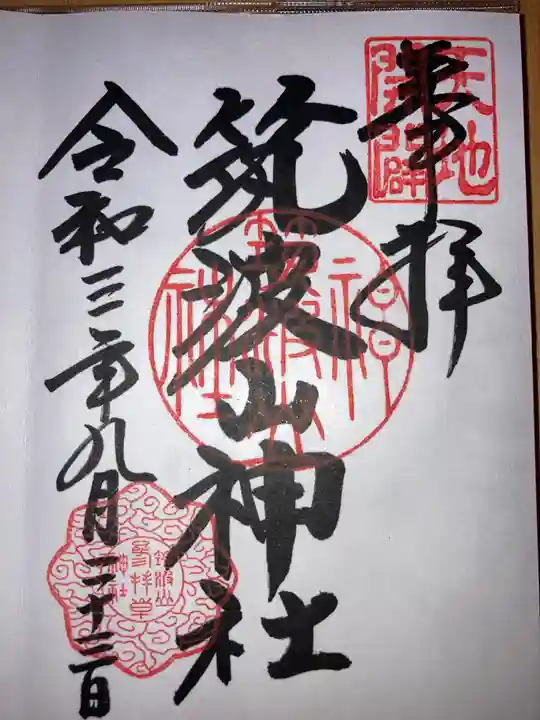 奉拝
天地
開闢
筑波山神社
令和三年九月二十三日
筑波山
参拝章
神社